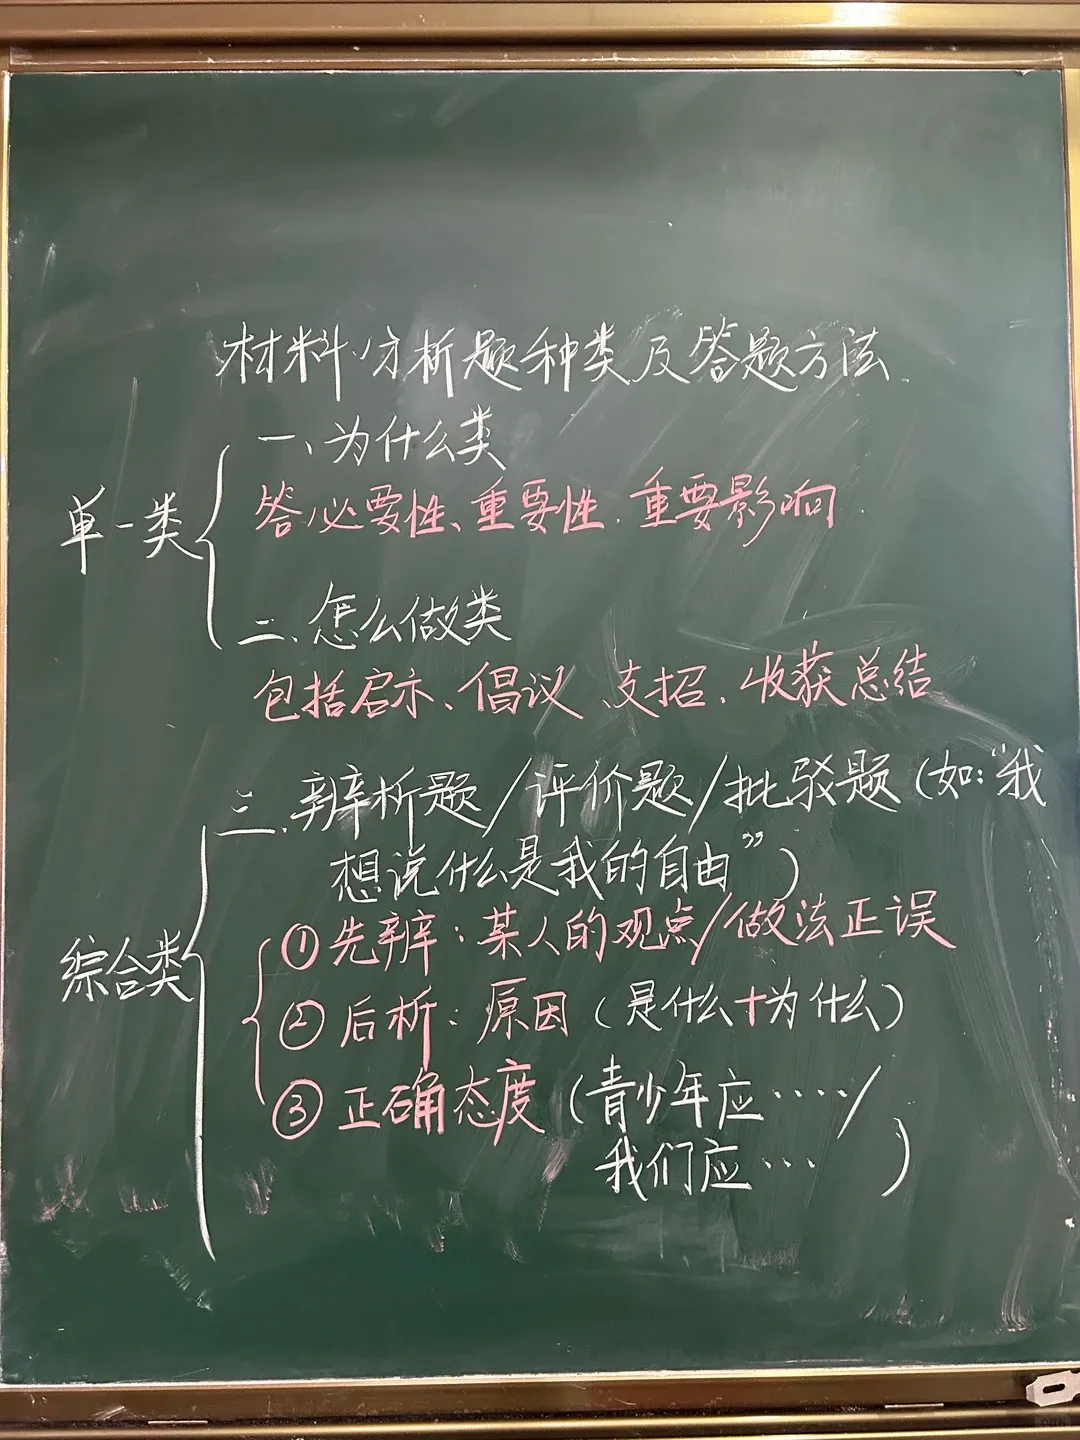 材料分析题种类及答题方法.
单一类
一、为什么类
答必要性、重要性、重要影响.
二、怎么做类
包括启示、倡议、支招、收获总结
综合类
三、辨析题/评价题/批驳题(如:“我
想说什么是我的自由”)
①先辨:某人的观点/做法正误
②后析:原因(是什么+为什么)
③正确态度(青少年应····/
我们应···)